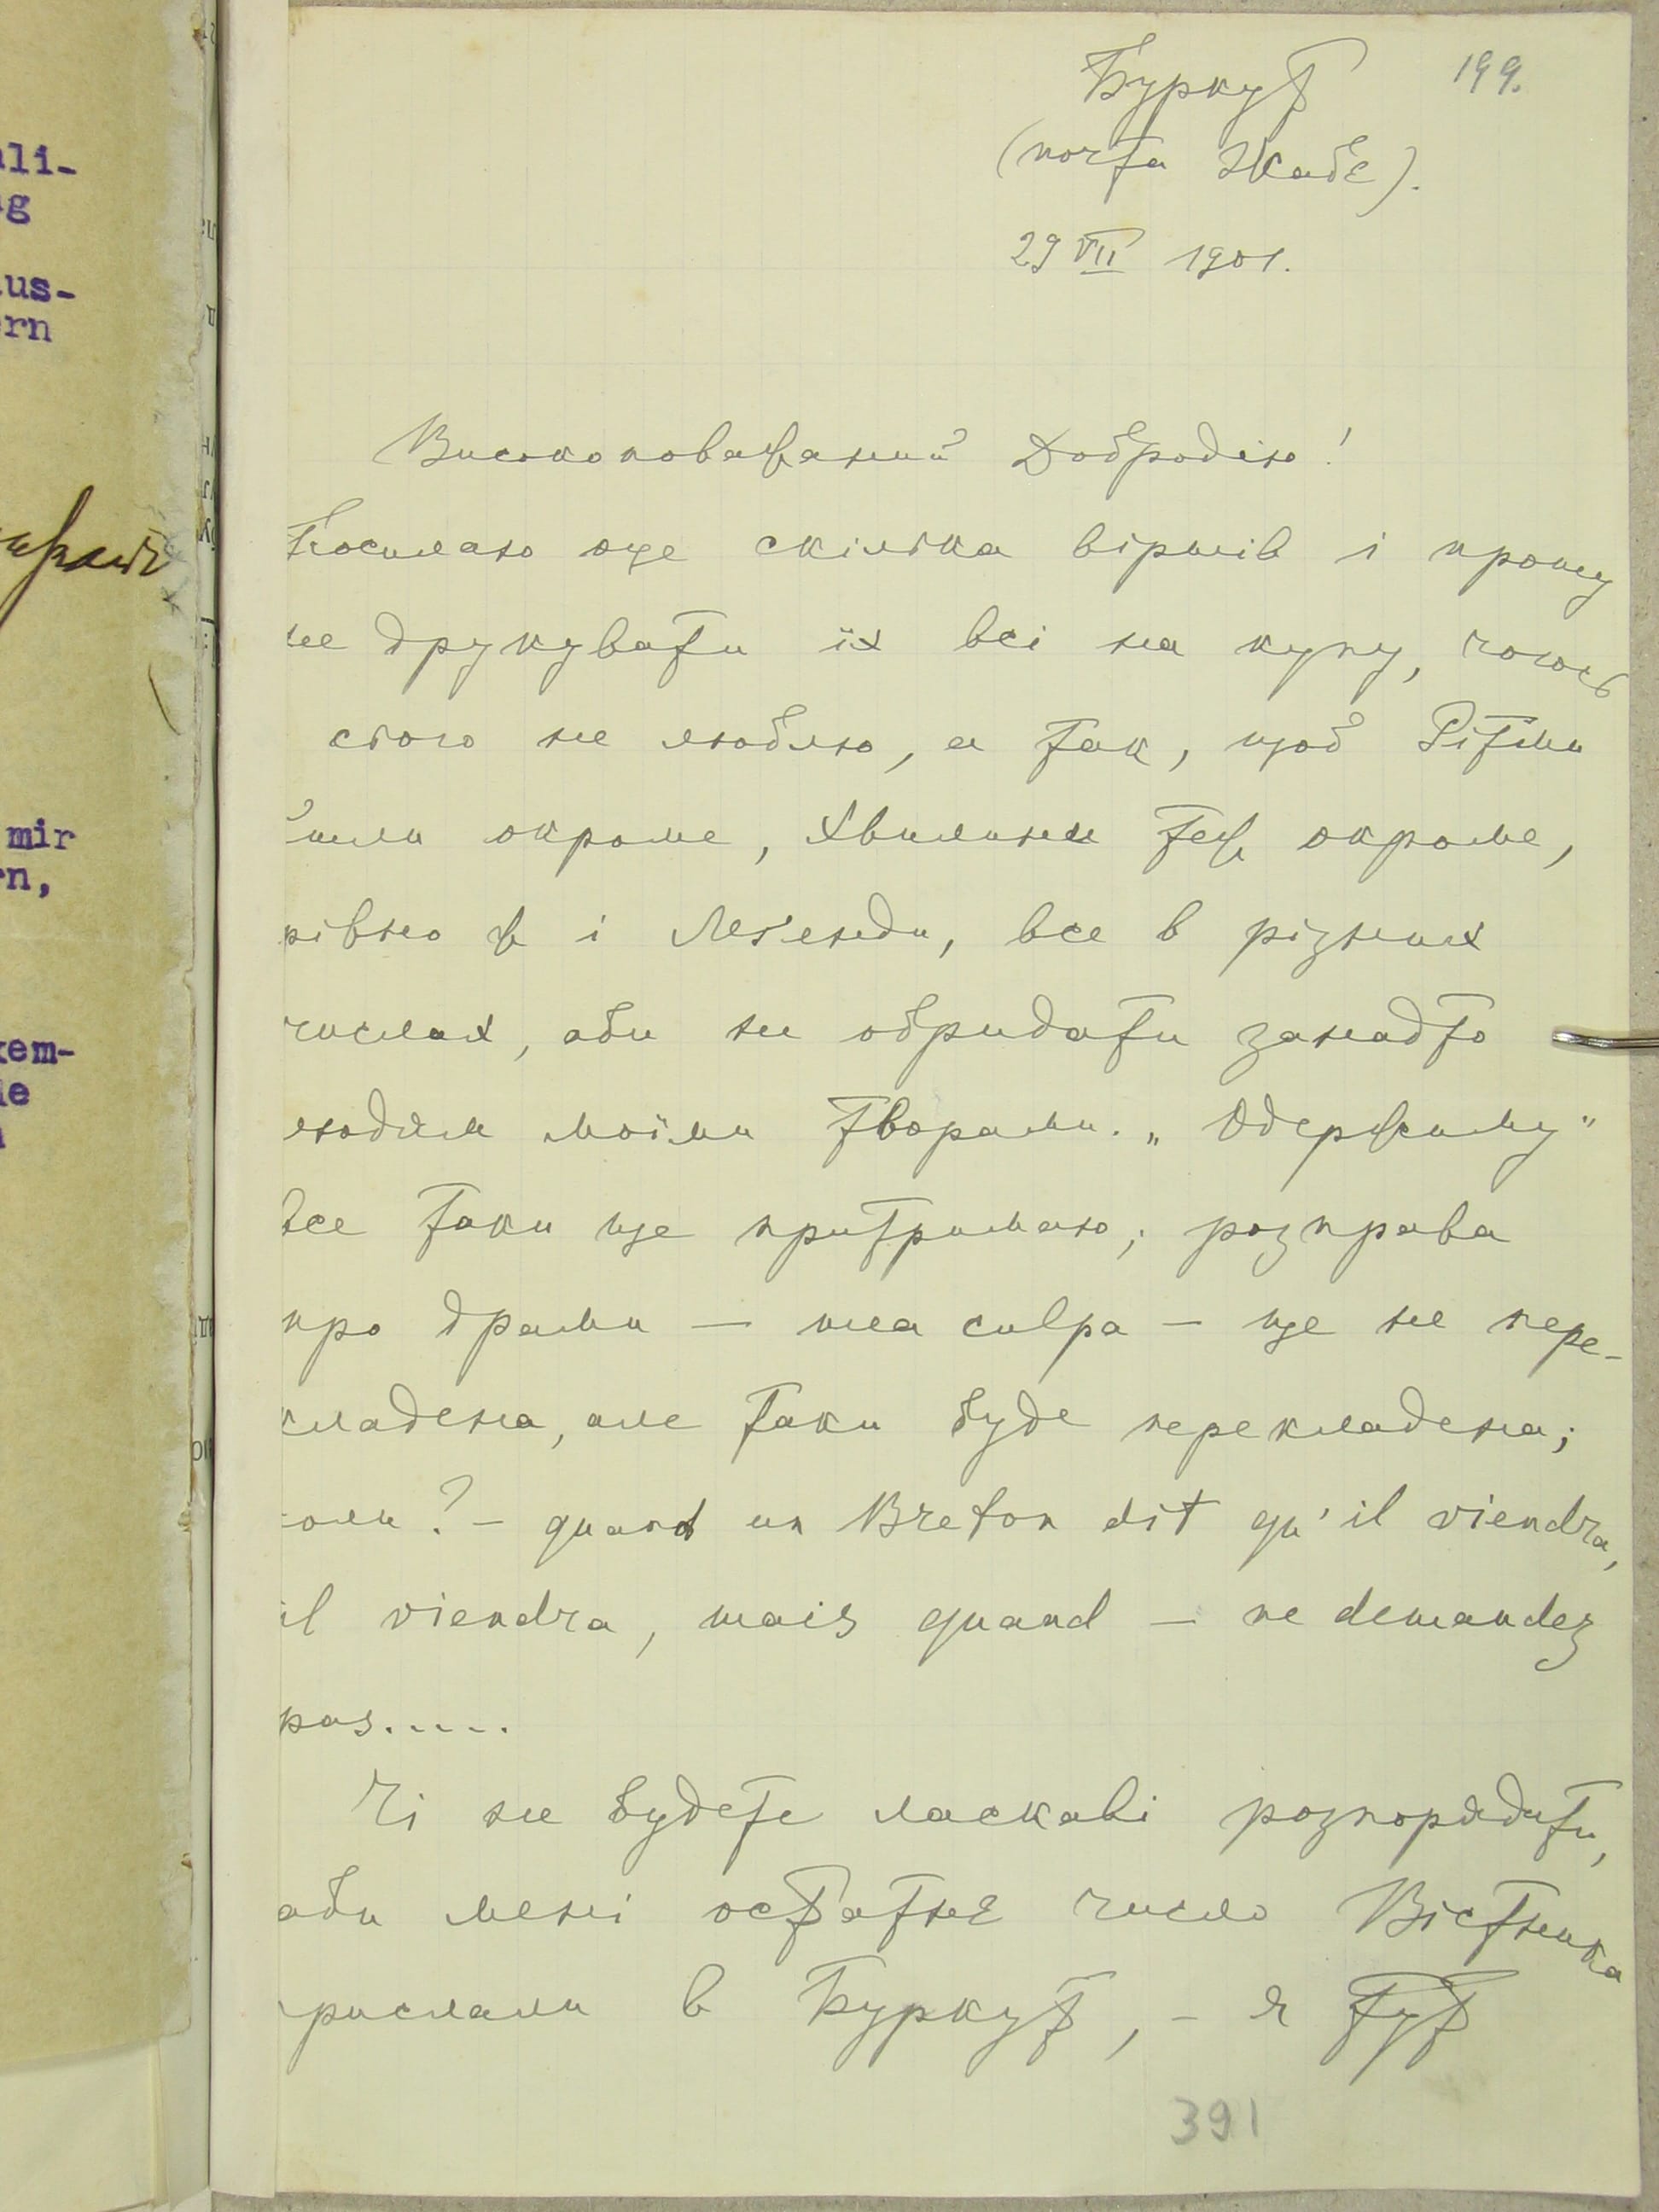 Буркут 199.
(почта Жабє).
29 VII 1901.
Високоповажаний Добродію!
Посилаю оце скілька віршів і прошу
не друкувати їх всі на купу, чогось
сього не люблю, а так, щоб Ритми
йшли окроме, Хвилини теж окроме,
рівно ж і Леґенди, все в різних
числах, аби не обридати занадто
людям моїми творами. „Одержиму"
все таки ще притримаю; розправа
про драми — mea culpa — ще не пере-
кладена, але таки буде перекладена;
коли? — quand un Breton dit qu'il viendra,
il viendra, mais quand — ne demandez
pas.....
Чі не будете ласкаві розпорядити,
аби мені остатнє число Вістника
прислали в Буркут, — я тут
391
ali-
ug
aus-
ern
mir
rn,
kem-
le